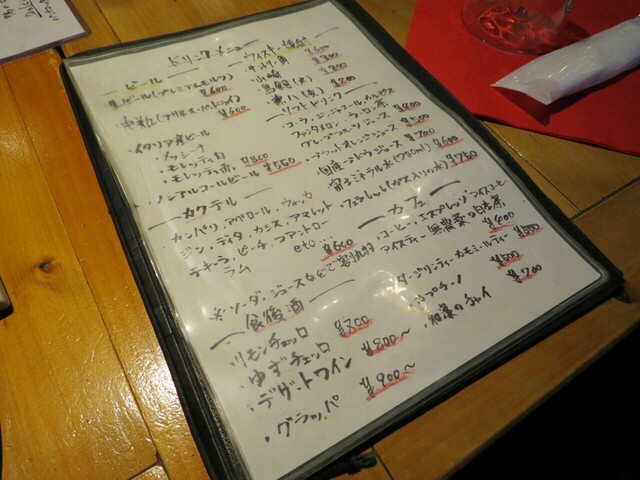 ドリンクメニュー
ービールー
生ビール(プレミアムモルツ)
¥600
¥600
イタリア産ビール
・メッシーナ
・モレッティ白
・モレッティ赤 ¥860
・ノンアルコールビール ¥550
ーカクテルー
カンパリ、アペロール、ウォッカ
ジン、ディタ、カシス、アマレット
テキーラ、ピーチ、コアントロー
ラム etc… ¥600
※ソーダ、ジュースなどで割ります
ー食後酒ー
・リモンチェッロ ¥700
・ゆずチェッロ
・デザートワイン ¥800〜
・グラッパ ¥900〜
ーウィスキー・焼酎ー
・サントリー角 ¥600
・山崎 ¥800
¥800
¥800
ーソフトドリンクー
・コーラ・ジンジャーエール・カルピス
ファンタメロン・ウーロン茶
グレープフルーツジュース ¥500
・ブラッドオレンジジュース ¥600
国産ブドウジュース ¥700
富士ミネラル水(750ml) ¥600
(ガス入りの水) ¥750
ーカフェー
・コーヒー・エスプレッソ・アイスコーヒー
アイスティー・無農薬の日本茶
¥400
・ダージリンティー・カモミールティー
¥500
・カプチーノ ¥500
¥700